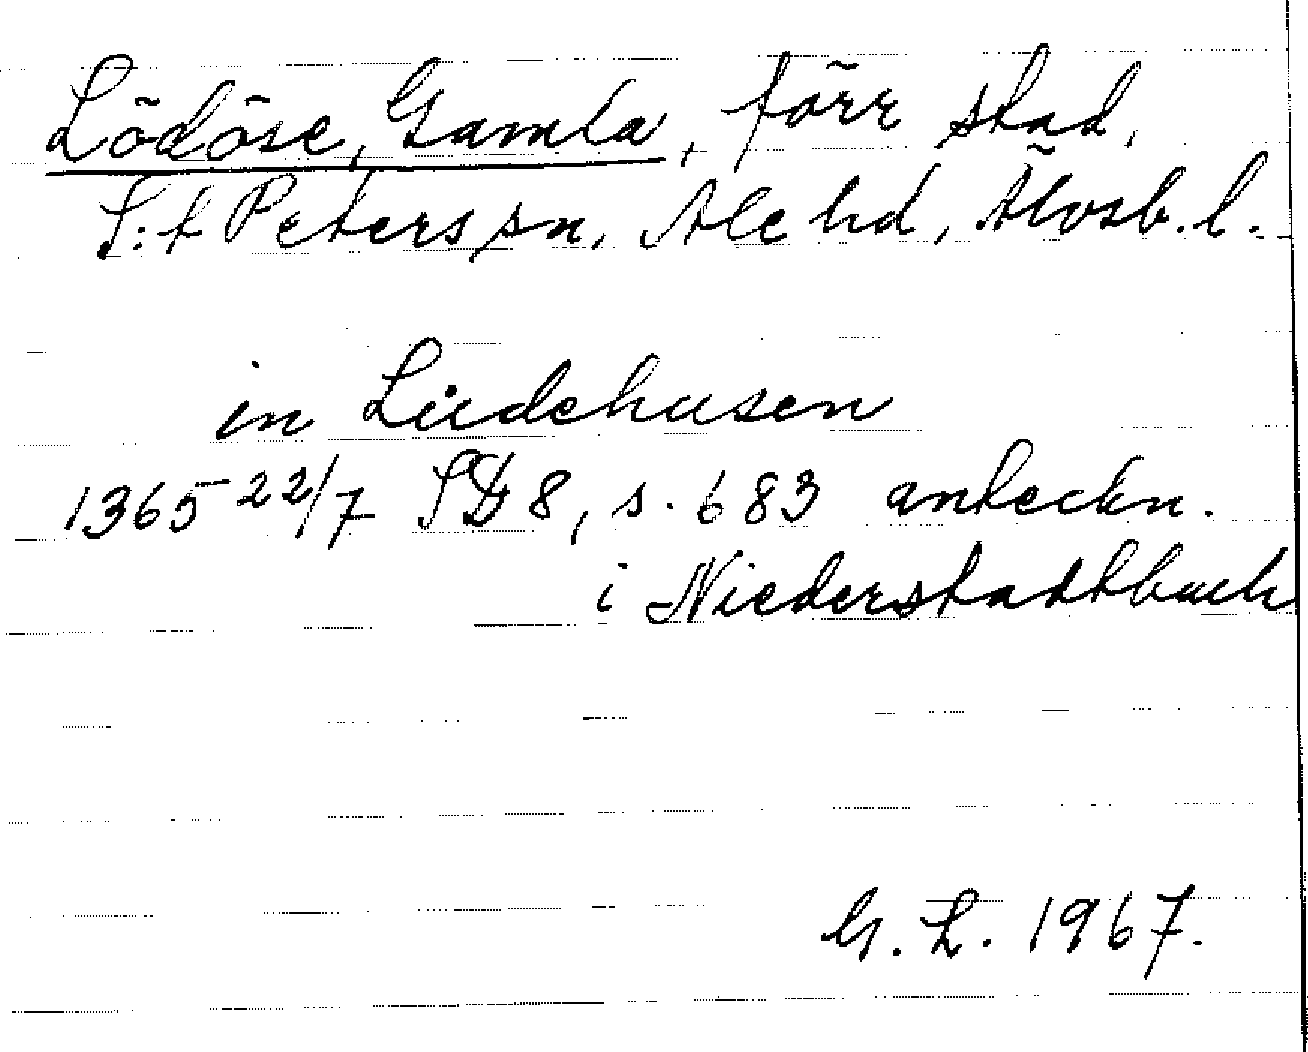 Lödöse, Gamla, förr stad,
S:t Peters sn, Ale hd, Älvsb. l.
in Lüdehusen
1365 22/7 SD 8, s. 683 anteckn.
i Niederstadtbuch
G. L. 1967.